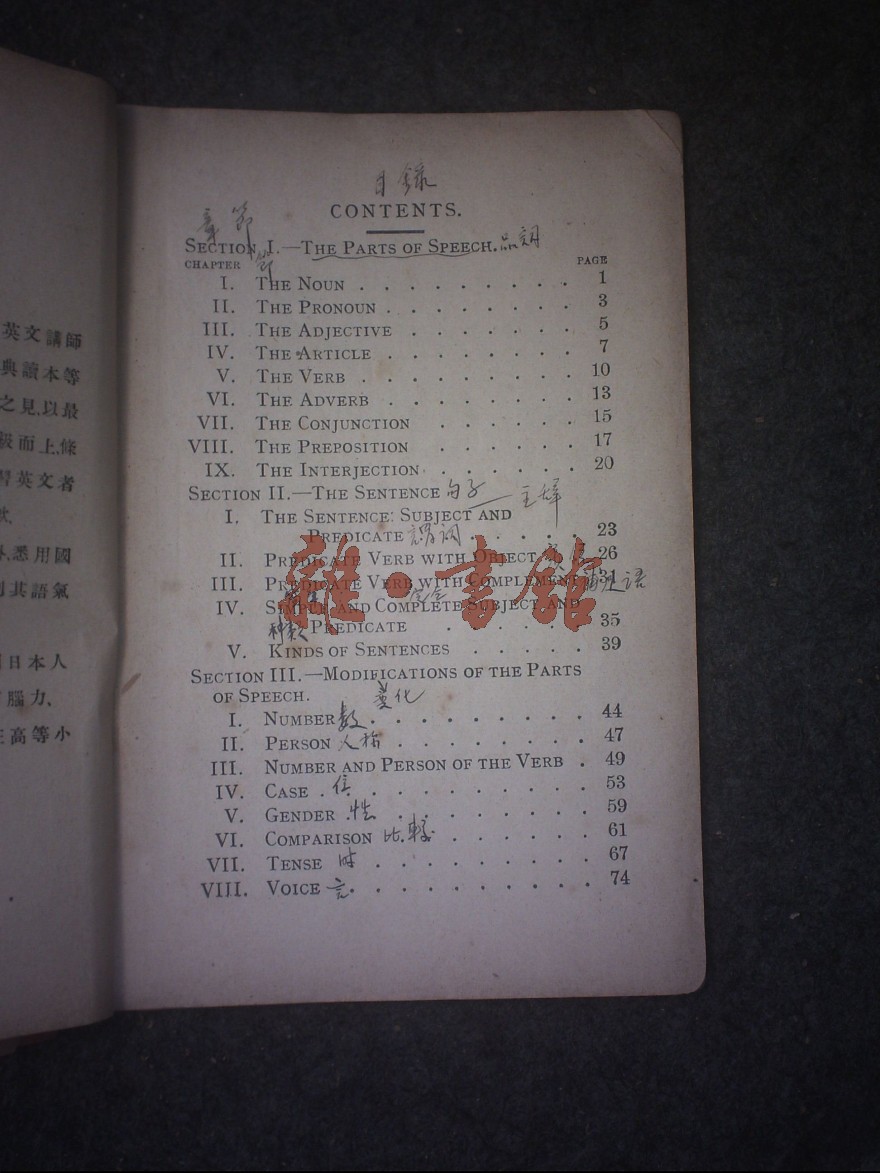 英文講師
典讀本等
之見、以最
級而上、條
習英文者
悉用國
其語氣
日本人
腦力、
高等小
目錄
CONTENTS.
章節
SECTION I.—THE PARTS OF SPEECH. 品詞
CHAPTER 節 PAGE
I. THE NOUN . . . . . . . . . 1
II. THE PRONOUN . . . . . . . . 3
III. THE ADJECTIVE . . . . . . . 5
IV. THE ARTICLE . . . . . . . . 7
V. THE VERB . . . . . . . . . 10
VI. THE ADVERB . . . . . . . . 13
VII. THE CONJUNCTION . . . . . . 15
VIII. THE PREPOSITION . . . . . . 17
IX. THE INTERJECTION . . . . . . 20
SECTION II.—THE SENTENCE 句子 主辞
I. THE SENTENCE: SUBJECT AND
PREDICATE 謂詞 . . . . . 23
II. PREDICATE VERB WITH OBJECT 26
III. PREDICATE VERB WITH COMPLEMENT 31
IV. SIMPLE AND COMPLETE SUBJECT AND 完全
PREDICATE . . . . . . 35
種類
V. KINDS OF SENTENCES . . . . . 39
SECTION III.—MODIFICATIONS OF THE PARTS
OF SPEECH. 變化
I. NUMBER 数 . . . . . . . . 44
II. PERSON 人称 . . . . . . . . 47
III. NUMBER AND PERSON OF THE VERB . 49
IV. CASE . 位 . . . . . . . . 53
V. GENDER . 性 . . . . . . . 59
VI. COMPARISON 比較 . . . . . . 61
VII. TENSE 时 . . . . . . . . 67
VIII. VOICE 言 . . . . . . . . 74
雜·書館